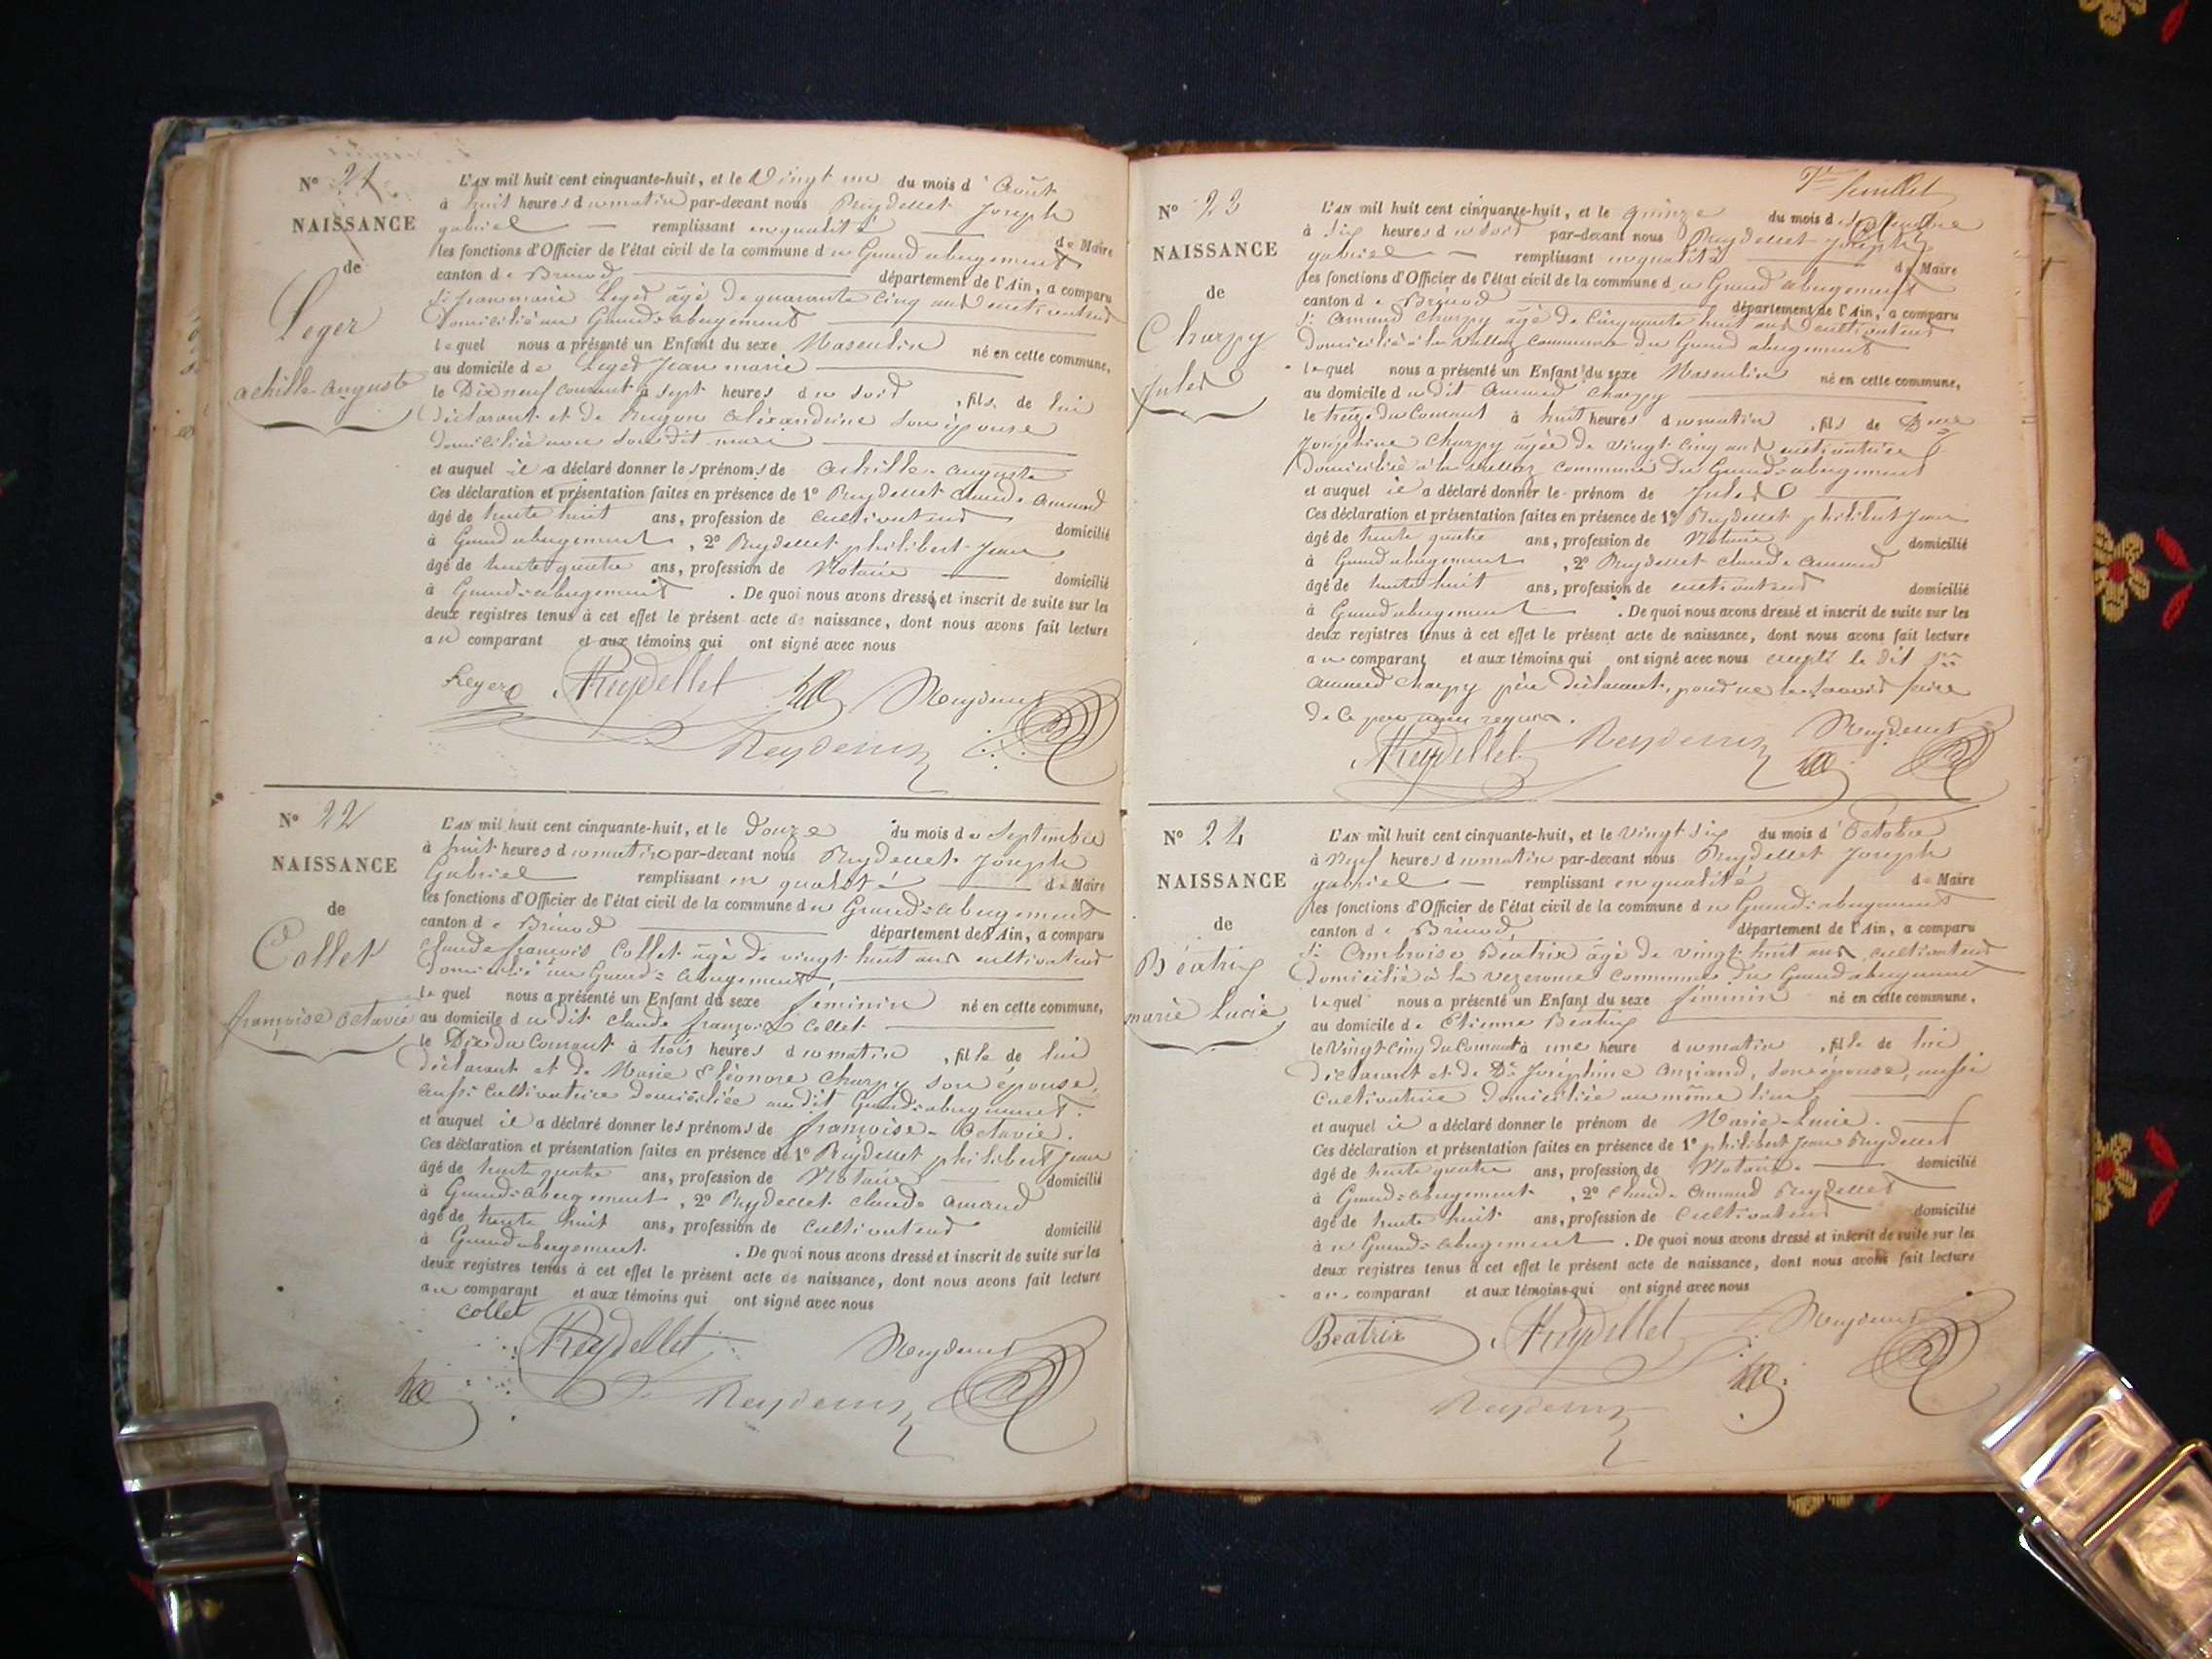 N° 21
NAISSANCE
de
Leger
achille auguste
L'AN mil huit cent cinquante-huit, et le Vingt un du mois d'Août
à huit heures du matin par-devant nous Reydellet Joseph
gabriel remplissant en qualité de Maire
les fonctions d'Officier de l'état civil de la commune du Grand abergement
canton de Brénod département de l'Ain, a comparu
Sr jean marie Leger âgé de quarante cinq ans cultivateur
domicilié au Grand-abergement
lequel nous a présenté un Enfant du sexe Masculin né en cette commune,
au domicile de Leger Jean marie
le Dix neuf courant à sept heures du soir , fils de lui
déclarant et de alexandrine son épouse
domiciliée avec son dit mari
et auquel il a déclaré donner les prénoms de achille-auguste
Ces déclaration et présentation faites en présence de 1° Reydellet claude amand
âgé de trente huit ans, profession de cultivateur domicilié
à Grand abergement , 2° Reydellet philibert Jean
âgé de trente quatre ans, profession de Notaire domicilié
à Grand-abergement . De quoi nous avons dressé et inscrit de suite sur les
deux registres tenus à cet effet le présent acte de naissance, dont nous avons fait lecture
au comparant et aux témoins qui ont signé avec nous
Leger Reydellet Reydellet
Reydellet
N° 22
NAISSANCE
de
Collet
françoise octavie
L'AN mil huit cent cinquante-huit, et le Douze du mois de Septembre
à huit heures du matin par-devant nous Reydellet Joseph
Gabriel remplissant en qualité de Maire
les fonctions d'Officier de l'état civil de la commune du Grand-abergement
canton de Brénod département de l'Ain, a comparu
Claude françois Collet âgé de vingt huit ans cultivateur
domicilié au Grand-abergement,
lequel nous a présenté un Enfant du sexe féminin né en cette commune,
au domicile du dit claude françois Collet
le Dix du Courant à trois heures du matin , fille de lui
déclarant et de Marie Eléonore Charpy son épouse,
aussi cultivatrice domiciliée audit Grand-abergement.
et auquel il a déclaré donner les prénoms de françoise-Octavie.
Ces déclaration et présentation faites en présence de 1° Reydellet philibert Jean
âgé de trente quatre ans, profession de Notaire domicilié
à Grand-abergement , 2° Reydellet claude amand
âgé de trente huit ans, profession de Cultivateur domicilié
à Grand abergement. . De quoi nous avons dressé et inscrit de suite sur les
deux registres tenus à cet effet le présent acte de naissance, dont nous avons fait lecture
au comparant et aux témoins qui ont signé avec nous
Collet Reydellet Reydellet
Reydellet
7e feuillet
N° 23
NAISSANCE
de
Charpy
Jules
L'AN mil huit cent cinquante-huit, et le quinze du mois de Septembre
à Six heures du soir par-devant nous Reydellet Joseph
gabriel remplissant en qualité de Maire
les fonctions d'Officier de l'état civil de la commune du Grand abergement
canton de Brénod département de l'Ain, a comparu
Sr Amand Charpy âgé de Cinquante huit ans cultivateur
domicilié à la commune du Grand abergement
lequel nous a présenté un Enfant du sexe Masculin né en cette commune,
au domicile du dit Amand Charpy
le treize du Courant à huit heures du matin , fils de Dlle
Joséphine Charpy âgée de vingt cinq ans cultivatrice
domiciliée à la commune du Grand-abergement
et auquel il a déclaré donner le prénom de Jules
Ces déclaration et présentation faites en présence de 1° Reydellet philibert Jean
âgé de trente quatre ans, profession de Notaire domicilié
à Grand abergement , 2° Reydellet claude amand
âgé de trente huit ans, profession de cultivateur domicilié
à Grand abergement . De quoi nous avons dressé et inscrit de suite sur les
deux registres tenus à cet effet le présent acte de naissance, dont nous avons fait lecture
au comparant et aux témoins qui ont signé avec nous excepté le dit
amand Charpy père déclarant, pour ne le savoir faire
de ce requis.
Reydellet Reydellet Reydellet
N° 24
NAISSANCE
de
Béatrix
marie Lucie
L'AN mil huit cent cinquante-huit, et le Vingt six du mois d'Octobre
à Neuf heures du matin par-devant nous Reydellet Joseph
gabriel remplissant en qualité de Maire
les fonctions d'Officier de l'état civil de la commune du Grand-abergement
canton de Brénod département de l'Ain, a comparu
Sr Ambroise Béatrix âgé de vingt huit ans, cultivateur
domicilié à la vezeronce commune du Grand abergement
lequel nous a présenté un Enfant du sexe féminin né en cette commune,
au domicile de Etienne Béatrix
le Vingt-Cinq du Courant à une heure du matin , fille de lui
déclarant et de De Joséphine anziand, son épouse, aussi
cultivatrice domiciliée au même lieu
et auquel il a déclaré donner le prénom de Marie-Lucie.
Ces déclaration et présentation faites en présence de 1° philibert Jean Reydellet
âgé de trente quatre ans, profession de Notaire domicilié
à Grand-abergement , 2° Claude Amand Reydellet
âgé de trente huit ans, profession de Cultivateur domicilié
à u Grand-abergement . De quoi nous avons dressé et inscrit de suite sur les
deux registres tenus à cet effet le présent acte de naissance, dont nous avons fait lecture
au comparant et aux témoins qui ont signé avec nous
Beatrix Reydellet Reydellet
Reydellet